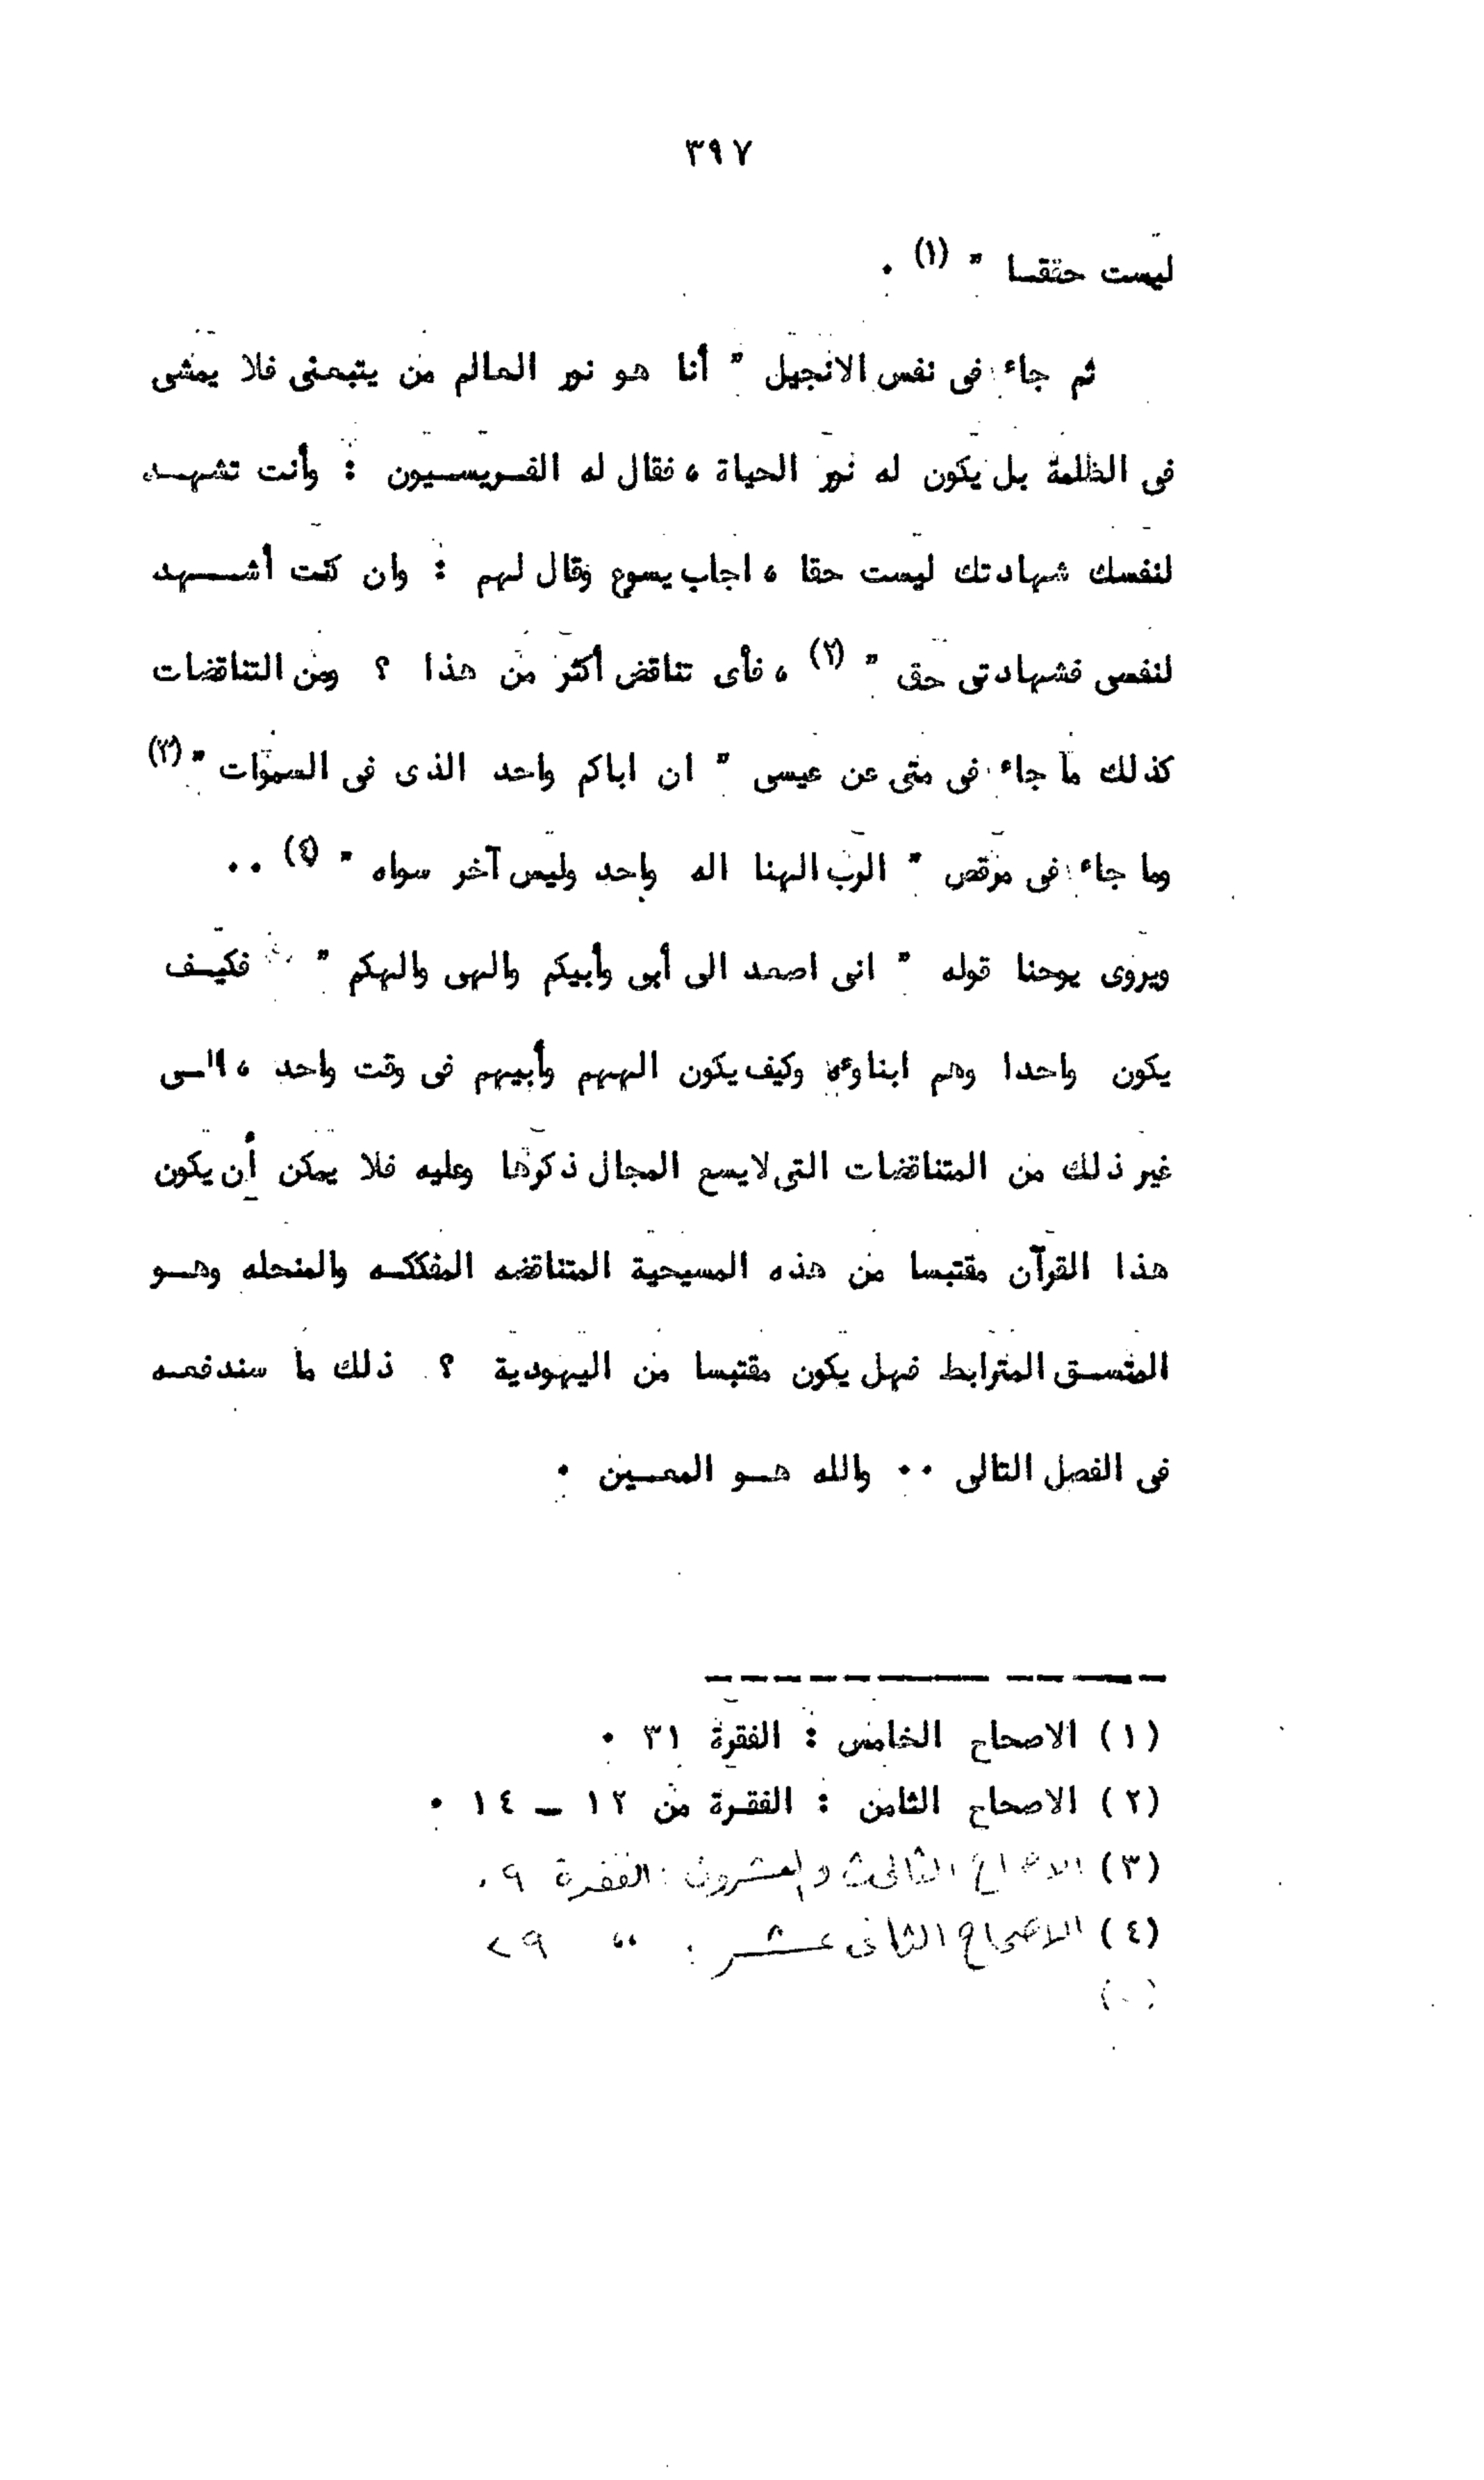 ٣٩٧
ليست حقا " (١) ٠
ثم جاء فى نفس الانجيل " أنا هو نور العالم من يتبعنى فلا يمشى
فى الظلمة بل يكون له نور الحياة ، فقال له الفريسيون : وأنت تشهد
لنفسك شهادتك ليست حقا ، اجاب يسوع وقال لهم : وان كنت أشهد
لنفسى فشهادتى حق " (٢) ، فأى تناقض أكثر من هذا ؟ ومن التناقضات
كذلك ما جاء فى متى عن عيسى " ان اباكم واحد الذى فى السموات " (٣)
وما جاء فى مرقص " الرب الهنا اله واحد وليس آخر سواه " (٤) ٠٠
ويروى يوحنا قوله " انى اصعد الى أبى وأبيكم والهى والهكم " فكيف
يكون واحدا وهم ابناؤه وكيف يكون الههم وأبيهم فى وقت واحد ، الى
غير ذلك من المتناقضات التى لايسع المجال ذكرها وعليه فلا يمكن أن يكون
هذا القرآن مقتبسا من هذه المسيحية المتناقضه المفككه والمنحله وهو
المتسق المترابط فهل يكون مقتبسا من اليهودية ؟ ذلك ما سندفعه
فى الفصل التالى ٠٠ والله هو المعين ٠
(١) الاصحاح الخامس : الفقرة ٣١ ٠
(٢) الاصحاح الثامن : الفقرة من ١٢ ــ ١٤ ٠
(٣) الاصحاح الثالث والعشرون : الفقرة ٩ ٠
(٤) الاصحاح الثانى عشر : " ٢٩